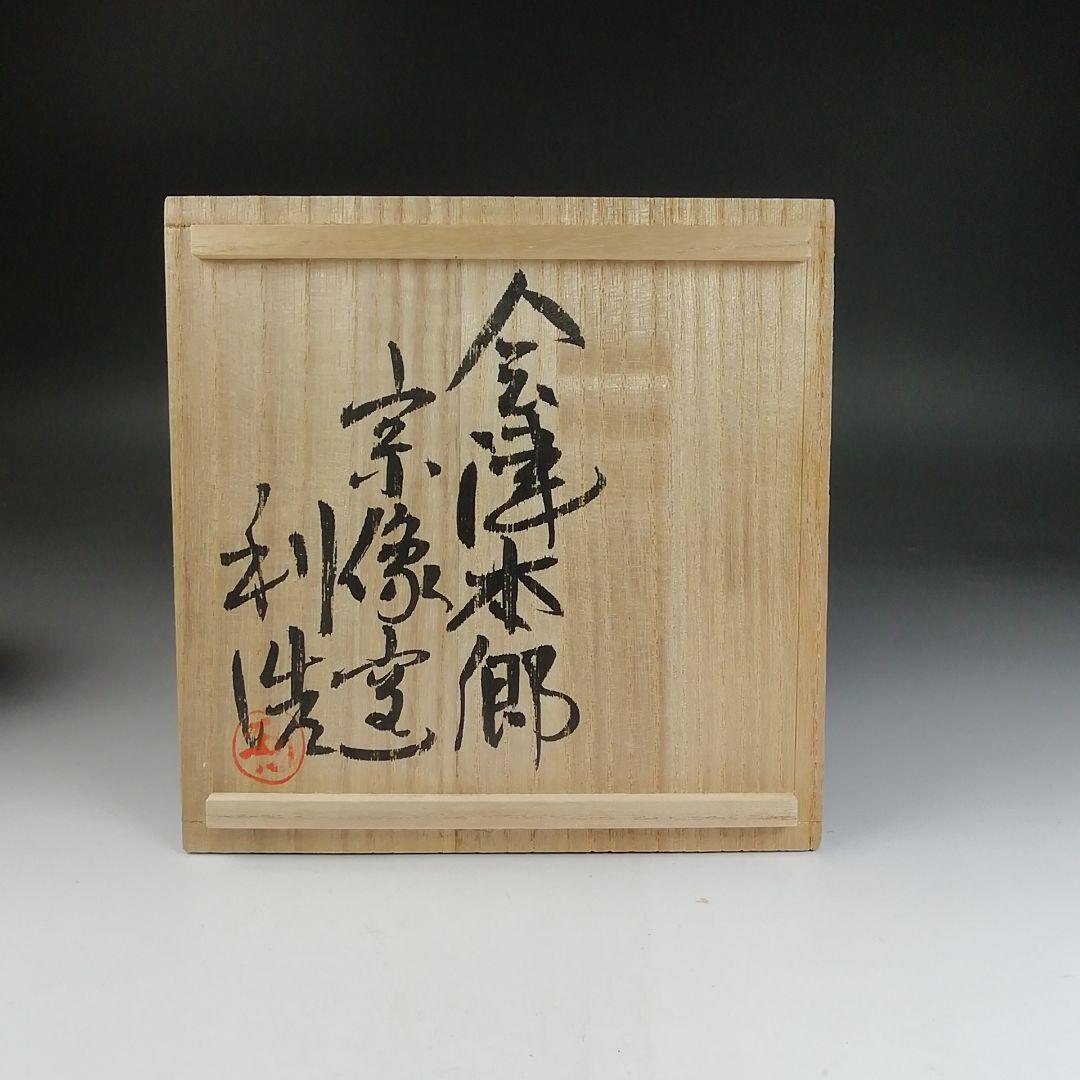 会津本郷
宗像窯
利浩